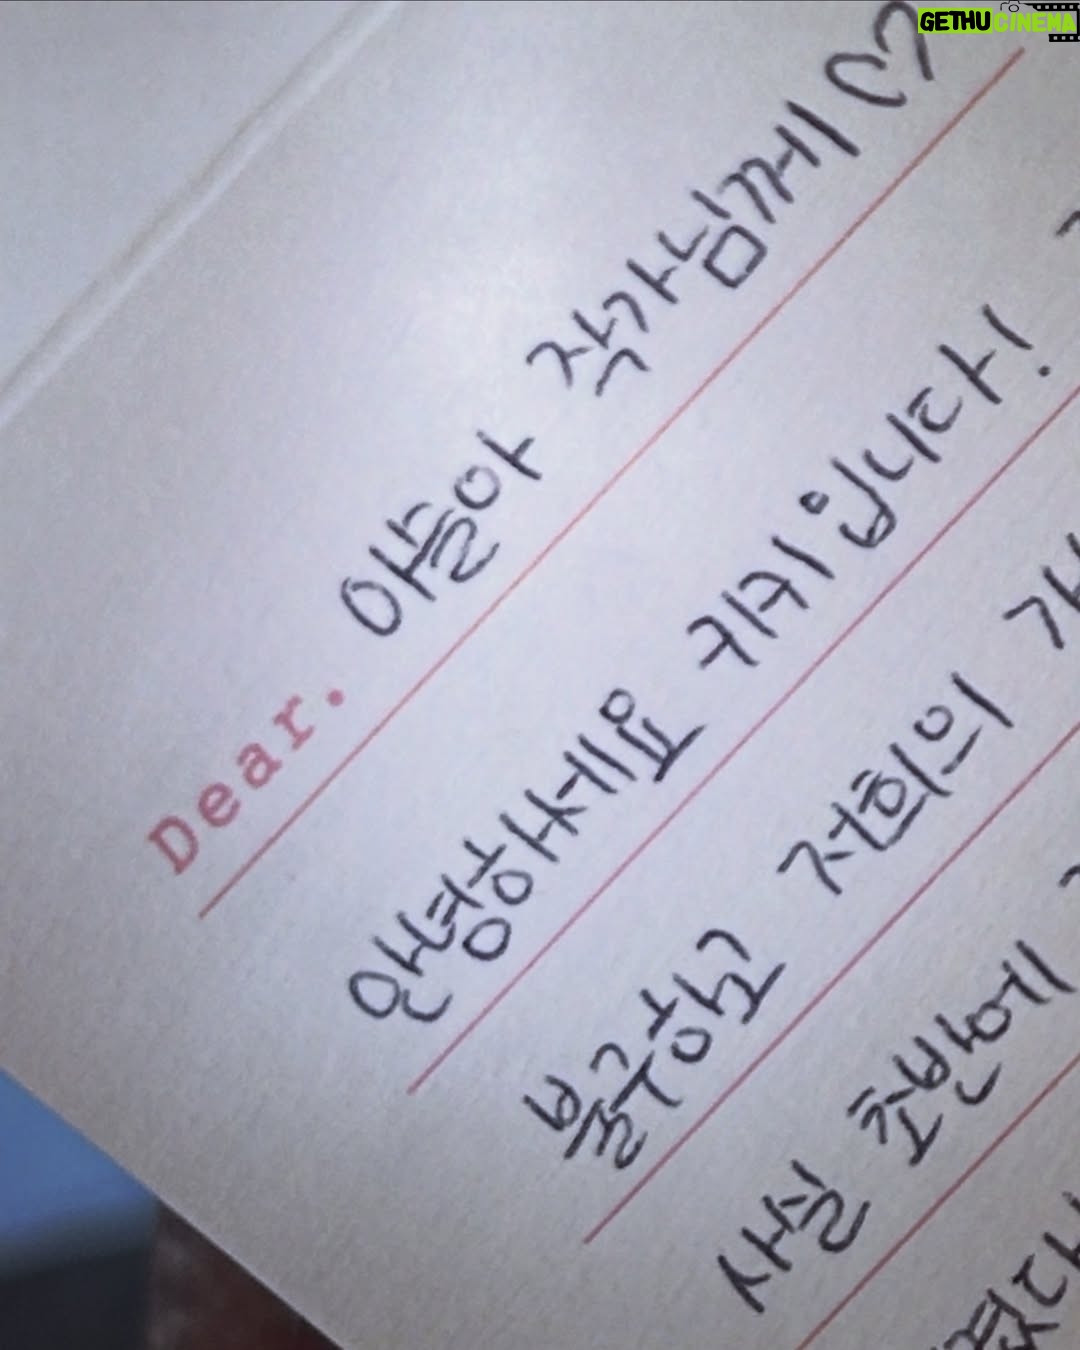 GETHUCINEMA
Dear. 아들아 작가님께
안녕하세요 키키입니다!
불구하고 저희의
사실 초반에